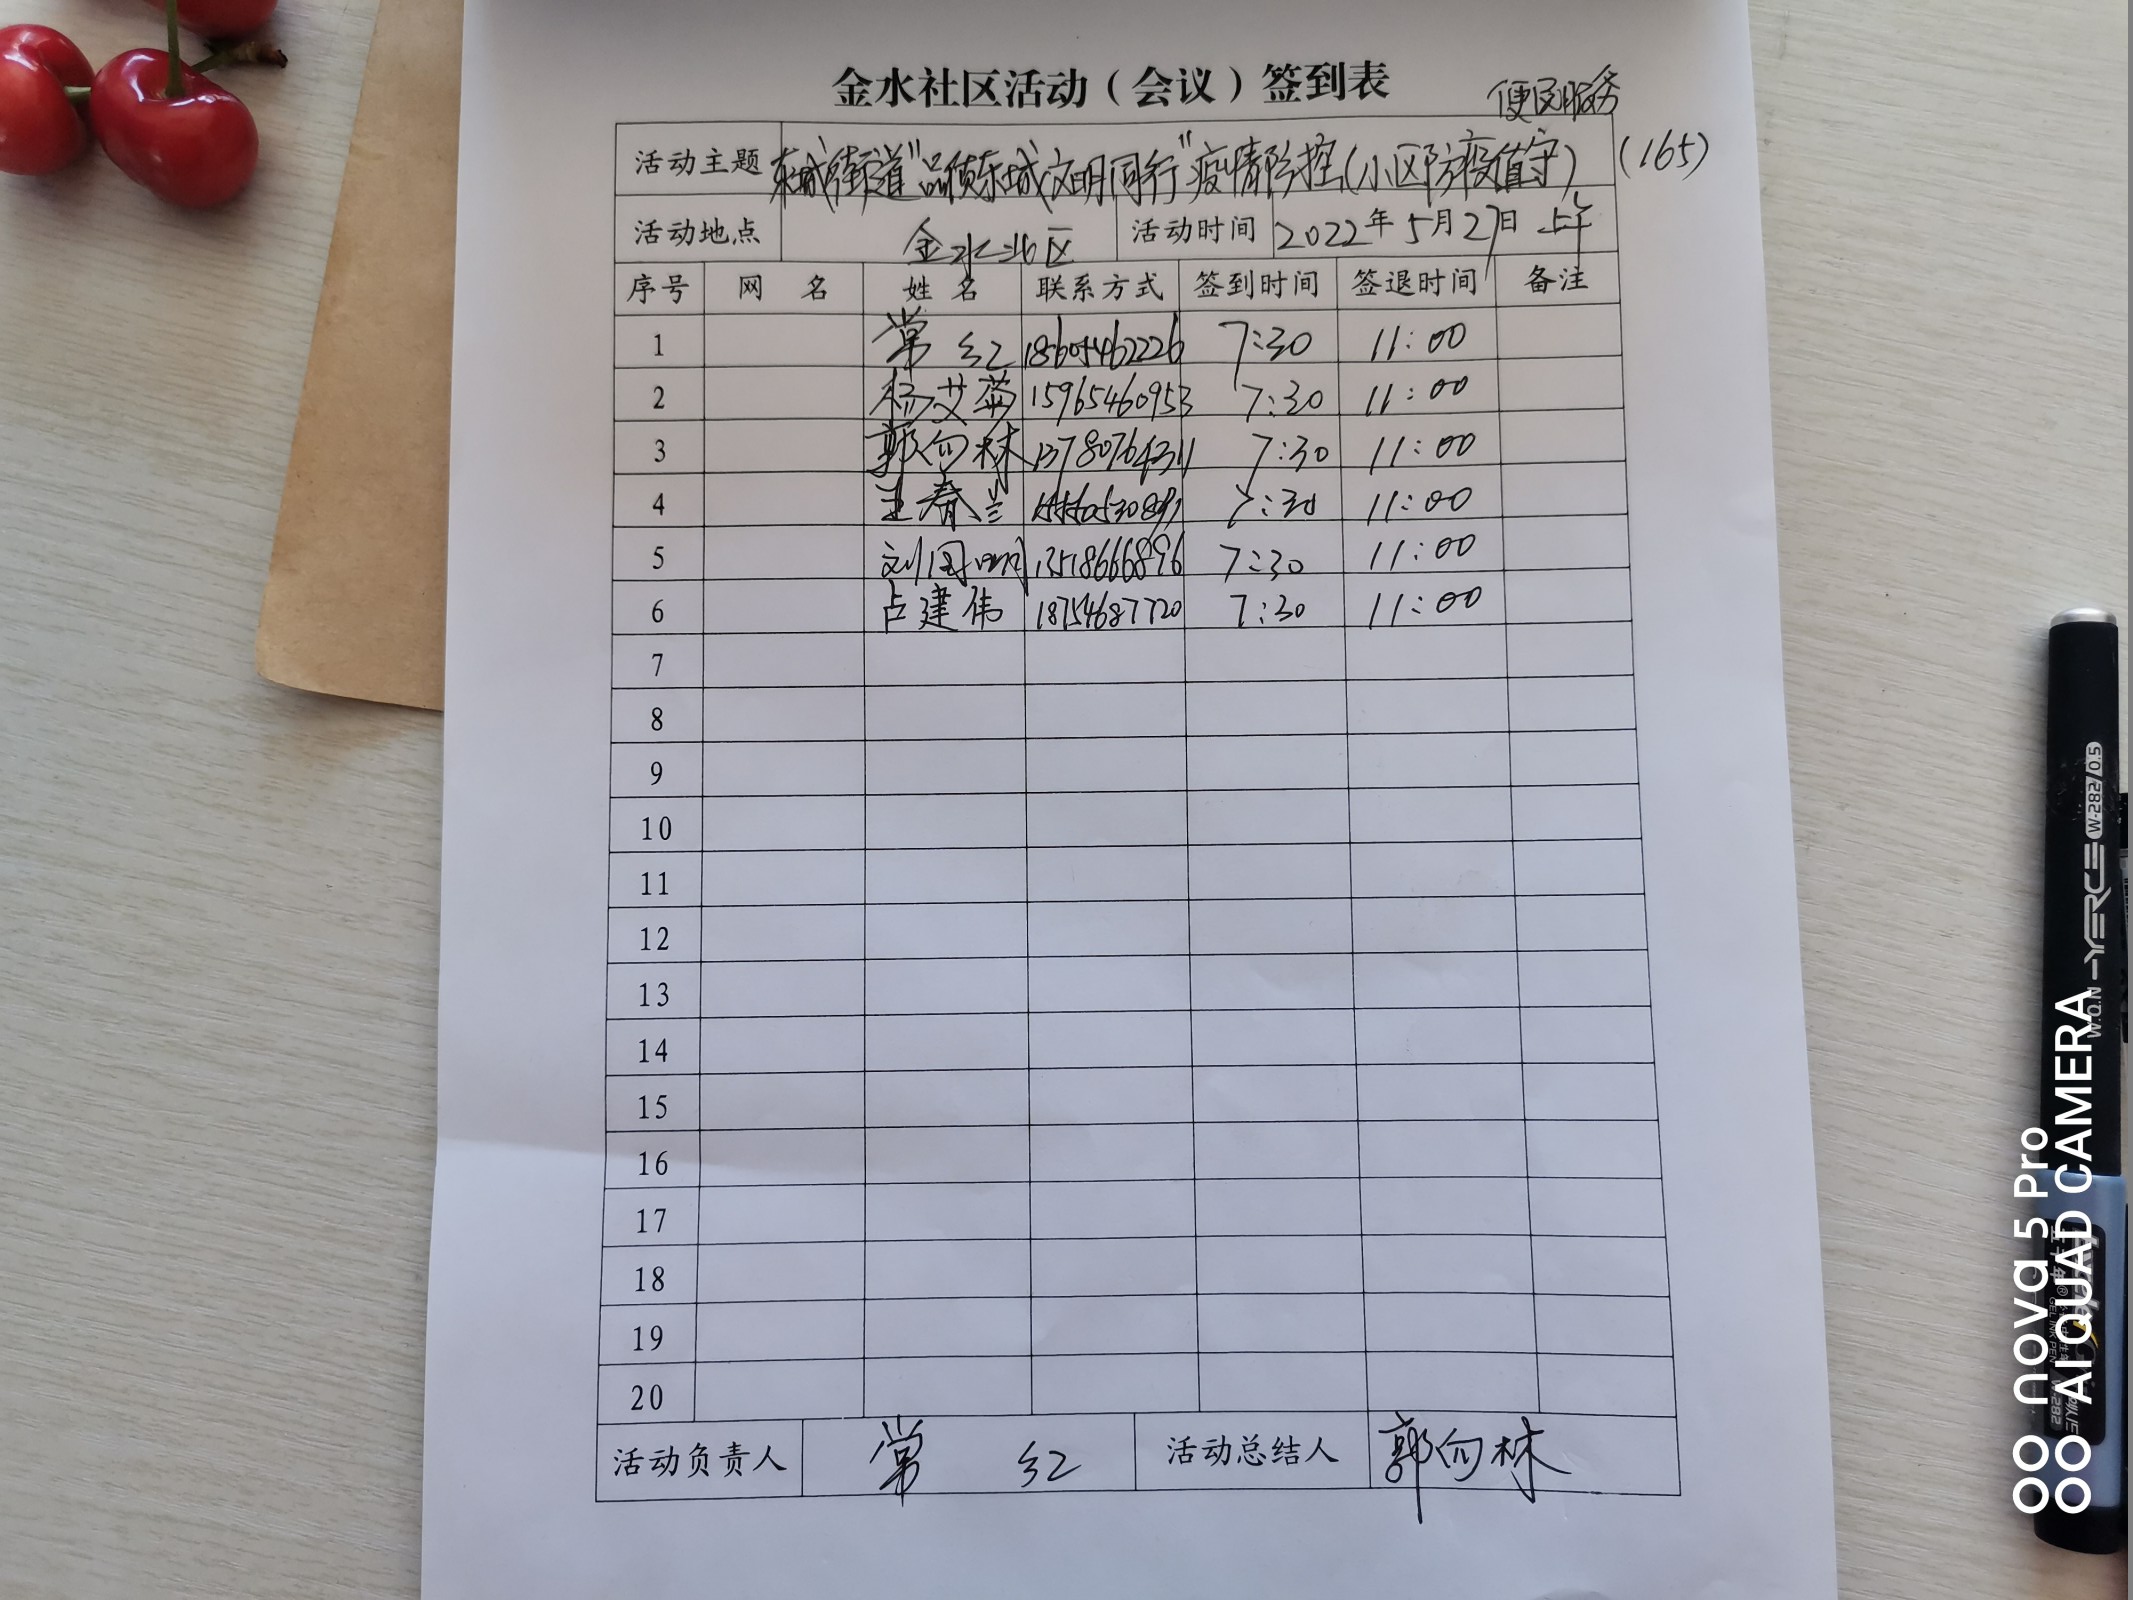 金水社区活动（会议）签到表
便民服务
活动主题 东城街道"品质东城文明同行"疫情防控(小区防疫值守) (165)
活动地点 金水北区 活动时间 2022年5月27日 上午
序号 网 名 姓 名 联系方式 签到时间 签退时间 备注
1 常 红 18605462226 7:30 11:00
2 杨艾菊 15965460953 7:30 11:00
3 郭向林 13780764311 7:30 11:00
4 王春兰 7:30 11:00
5 刘国明 13518666896 7:30 11:00
6 占建伟 18754687720 7:30 11:00
7
8
9
10
11
12
13
14
15
16
17
18
19
20
活动负责人 常 红 活动总结人 郭向林
W.Q.N YERCE W-282/0.5
GEL INK PEN
nova 5 Pro
AI QUAD CAMERA